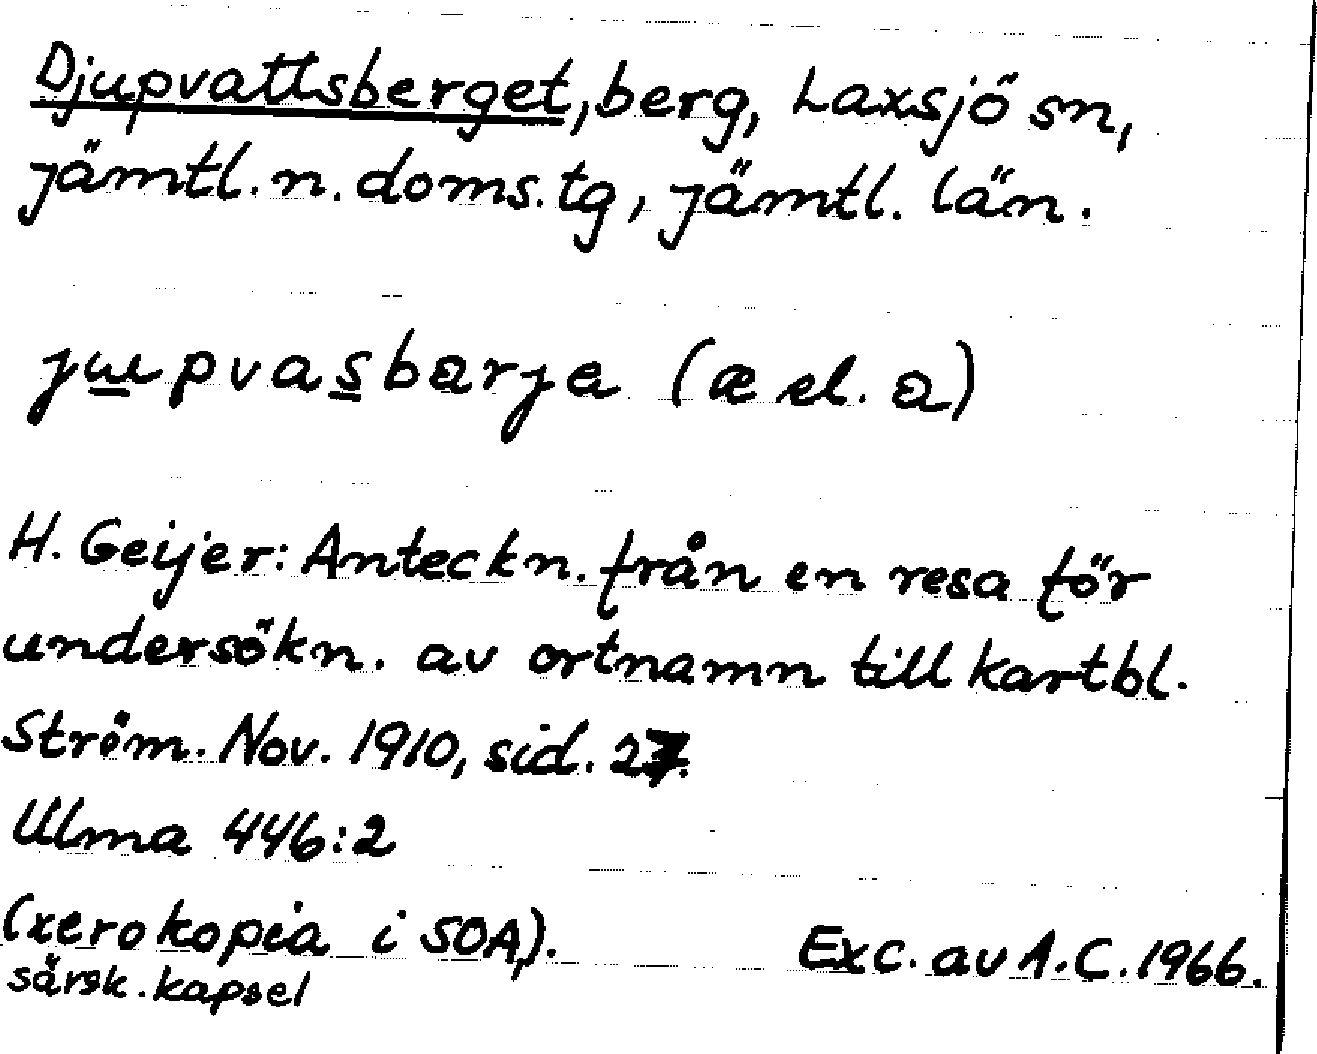 Djupvattsberget, berg, Laxsjö sn,
Jämtl. n. doms. tg, Jämtl. län.
jɯpvasbarja (æ el. a)
H. Geijer: Anteckn. från en resa för
undersökn. av ortnamn till kartbl.
Ström. Nov. 1910, sid. 27.
Ulma 446:2
(xerokopia i SOA,).
särsk. kapsel
Exc. av A.C. 1966.